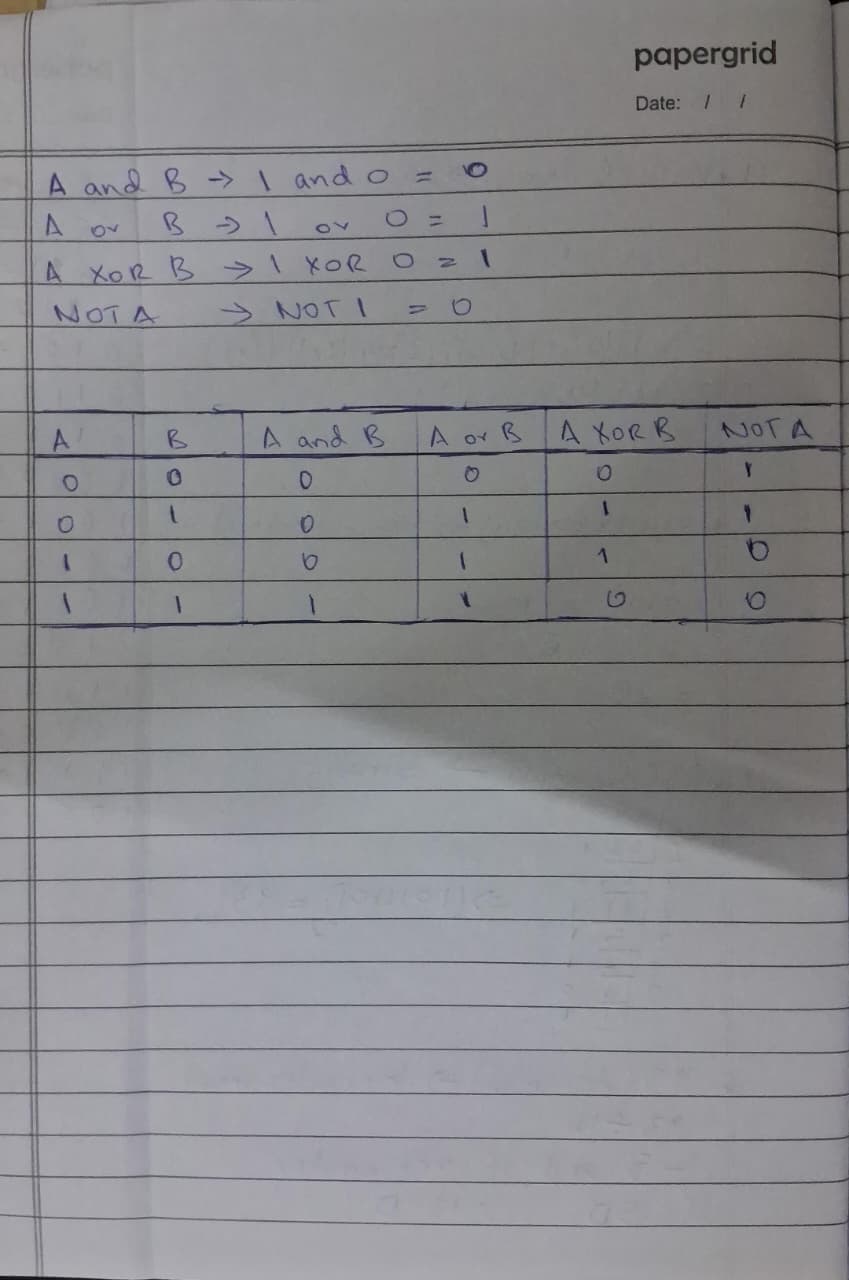 papergrid
Date: / /
A and B → 1 and 0 = 0
A or B → 1 or 0 = 1
A XOR B → 1 XOR 0 = 1
NOT A → NOT 1 = 0
A B A and B A or B A XOR B NOT A
0 0 0 0 0 1
0 1 0 1 1 1
1 0 0 1 1 0
1 1 1 1 0 0